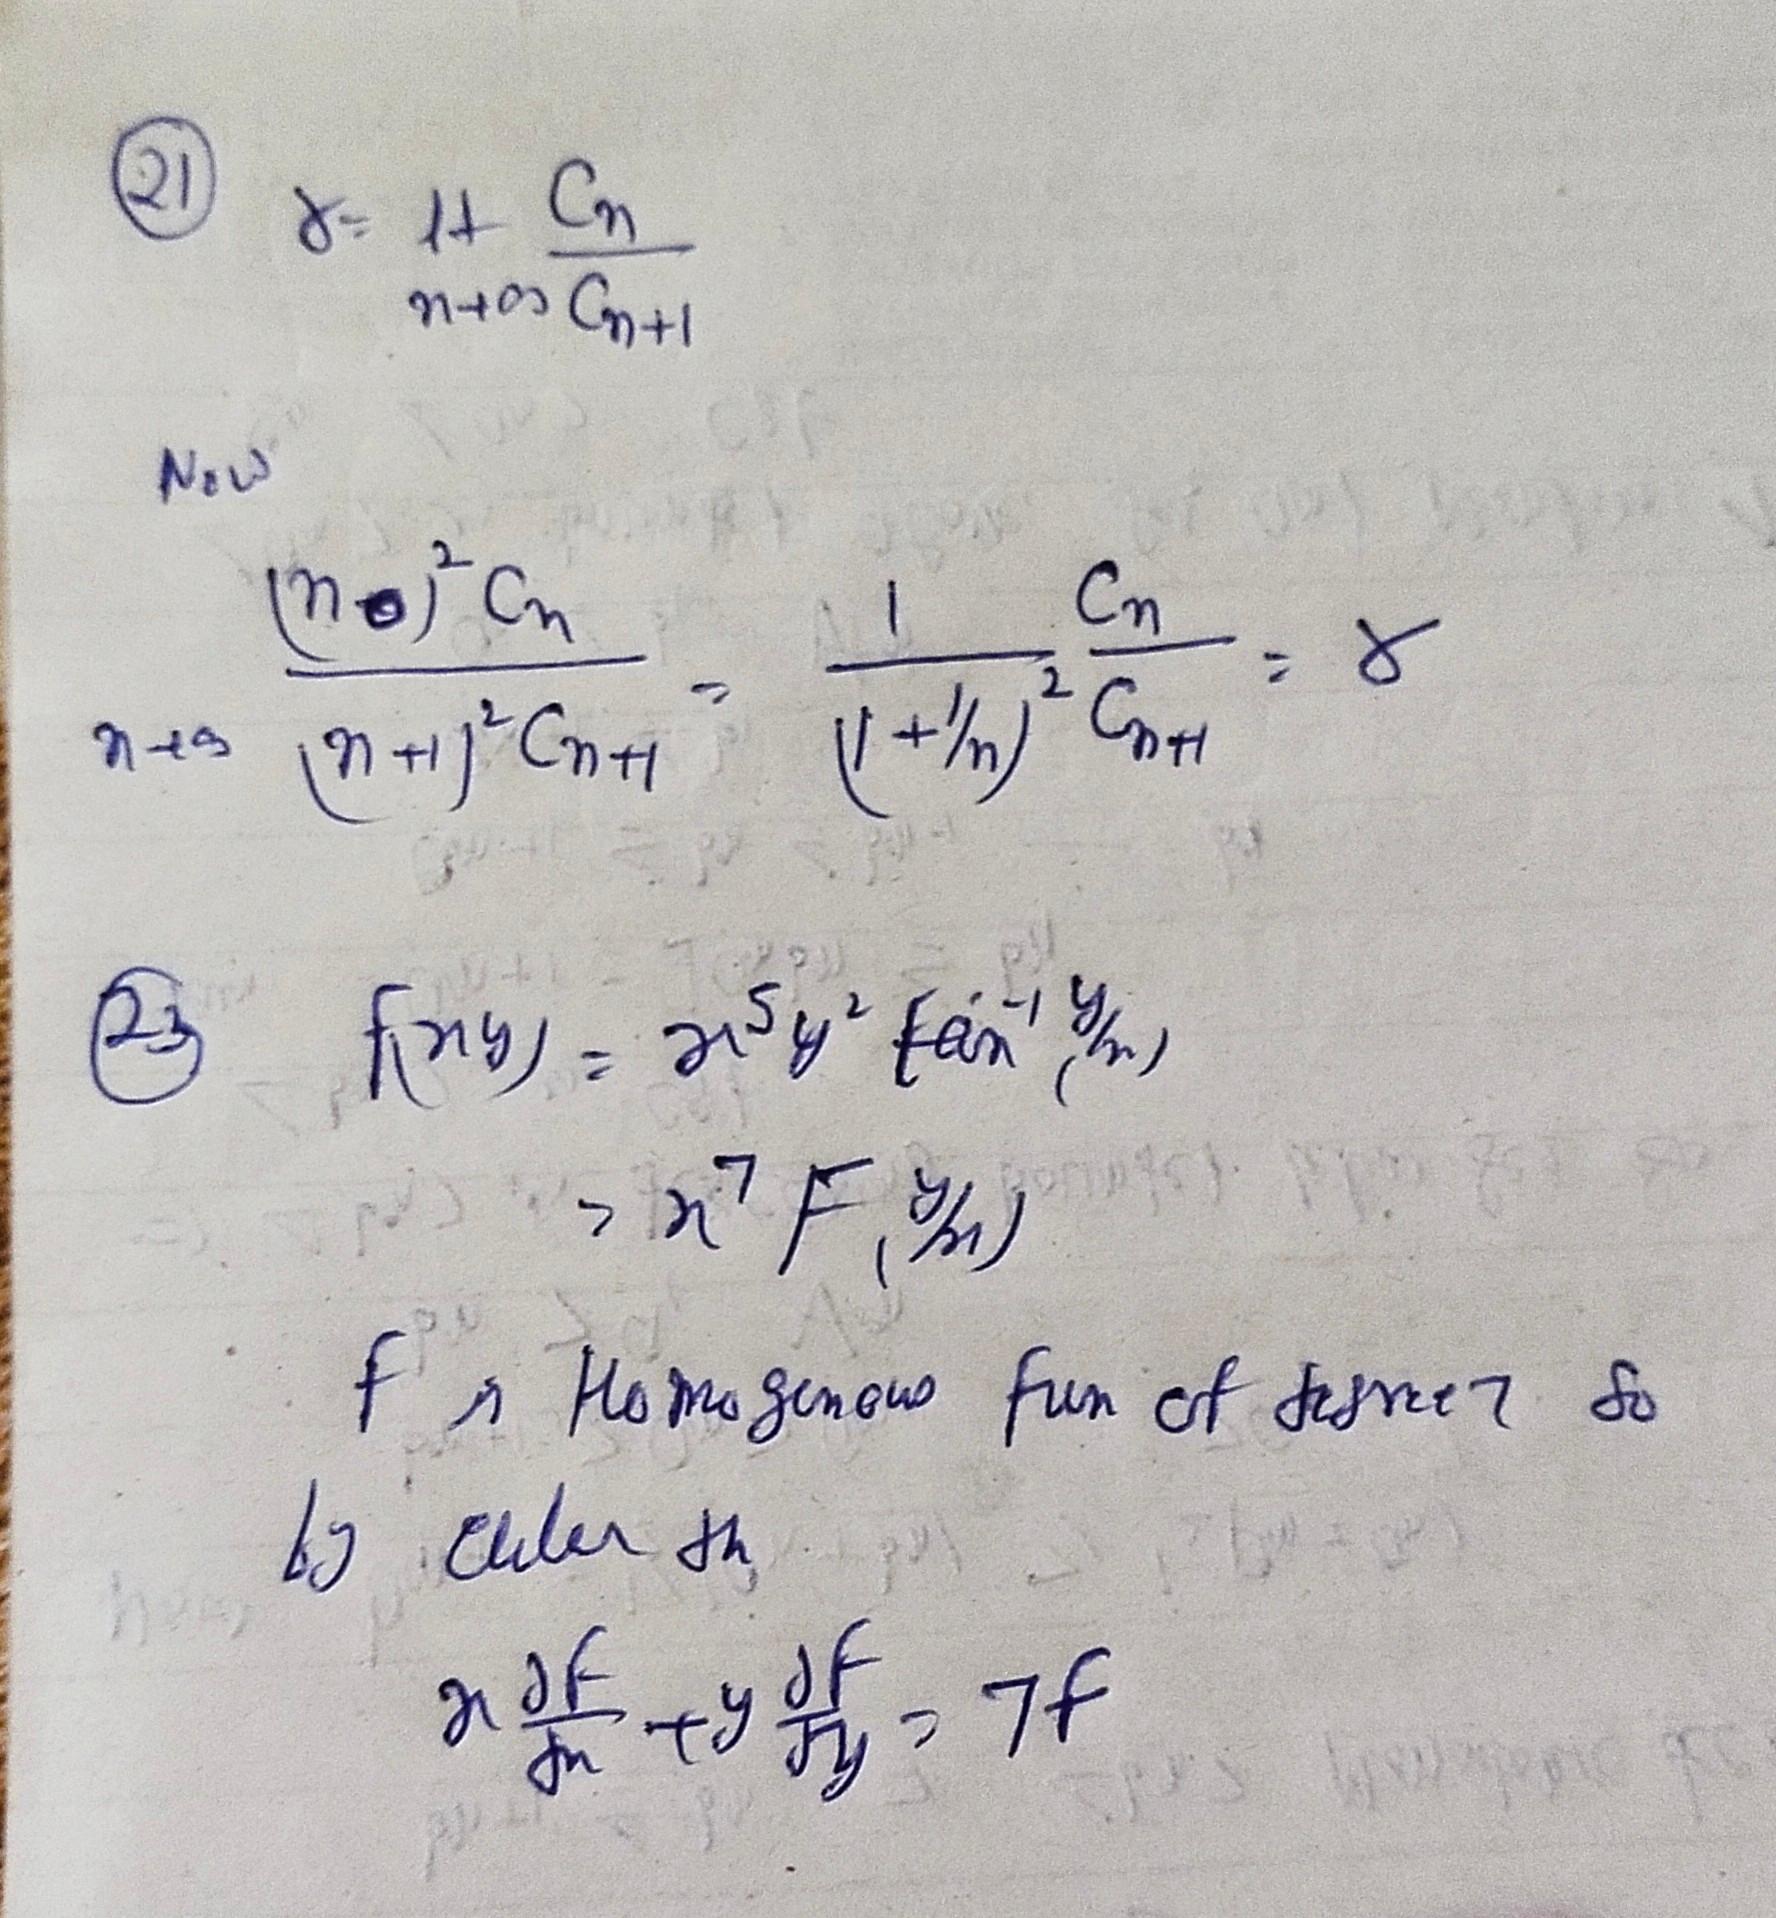 21 γ = lt n→∞ Cn / Cn+1
Now
n→∞ (n)² Cn / (n+1)² Cn+1 = 1 / (1+1/n)² Cn / Cn+1 = γ
23 f(x y) = x⁵ y² tan⁻¹ (y/x)
= x⁷ F (y/x)
f is Homogenous fun of degree 7 so
by euler th
x ∂f/∂x + y ∂f/∂y = 7f